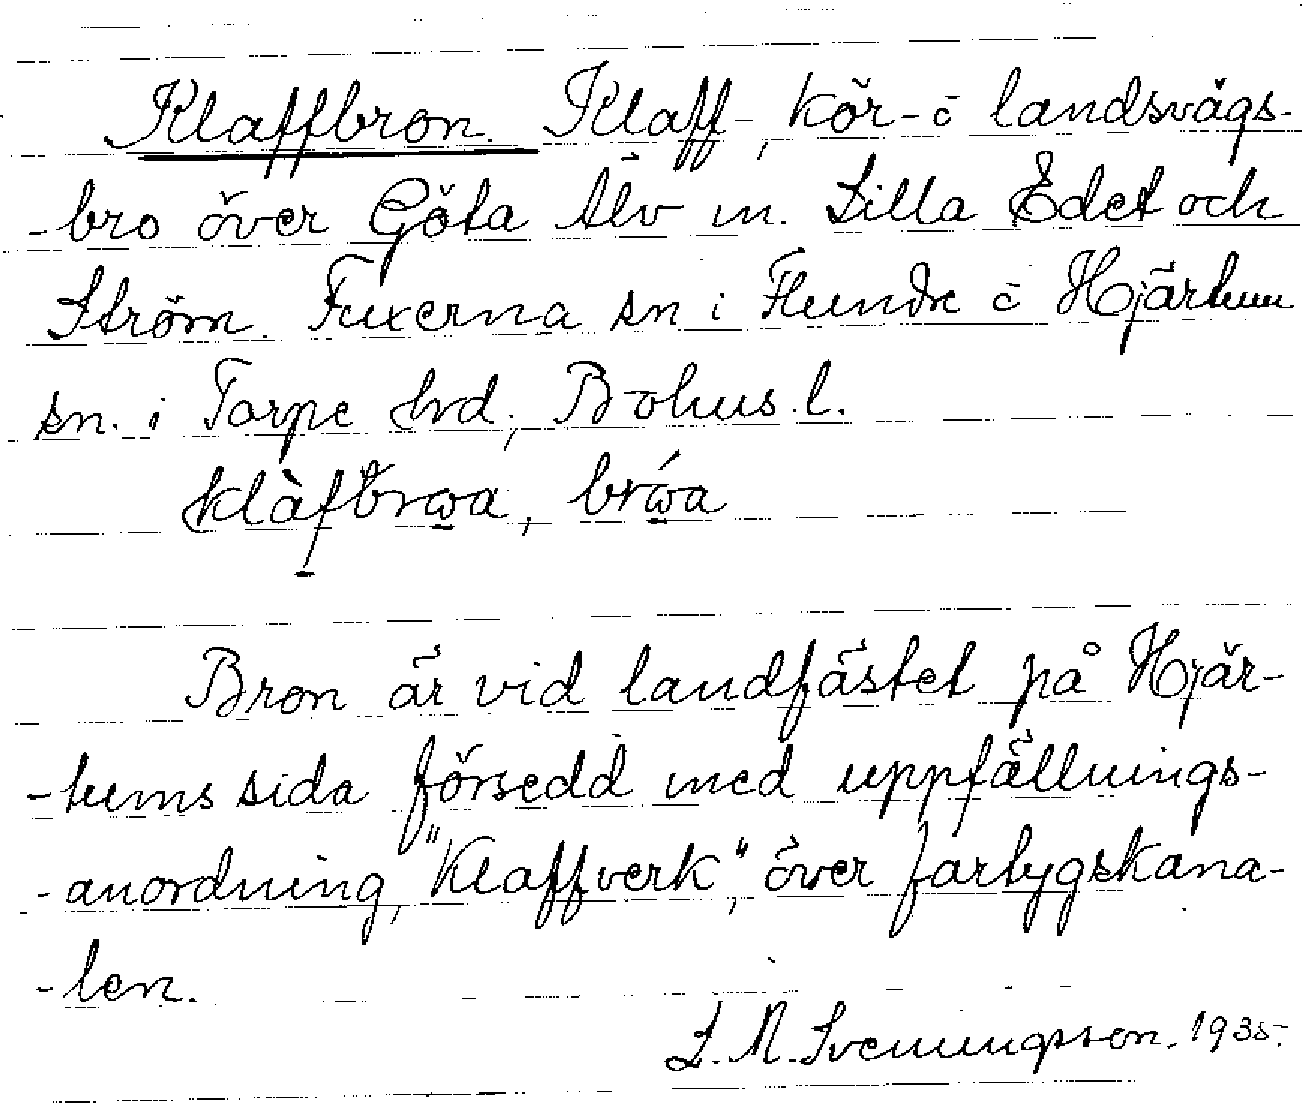 Klaffbron. Klaff-, kör- o landsvägs-
-bro över Göta Älv m. Lilla Edet och
Ström. Fuxerna sn i Flundre o Hjärtum
sn. i Torpe hrd, Bohus l.
klàfbrωa, brώa
Bron är vid landfästet på Hjär-
-tums sida försedd med uppfällnings-
-anordning, "Klaffverk", över fartygskana-
-len.
L. N. Svenungsson. 1935.